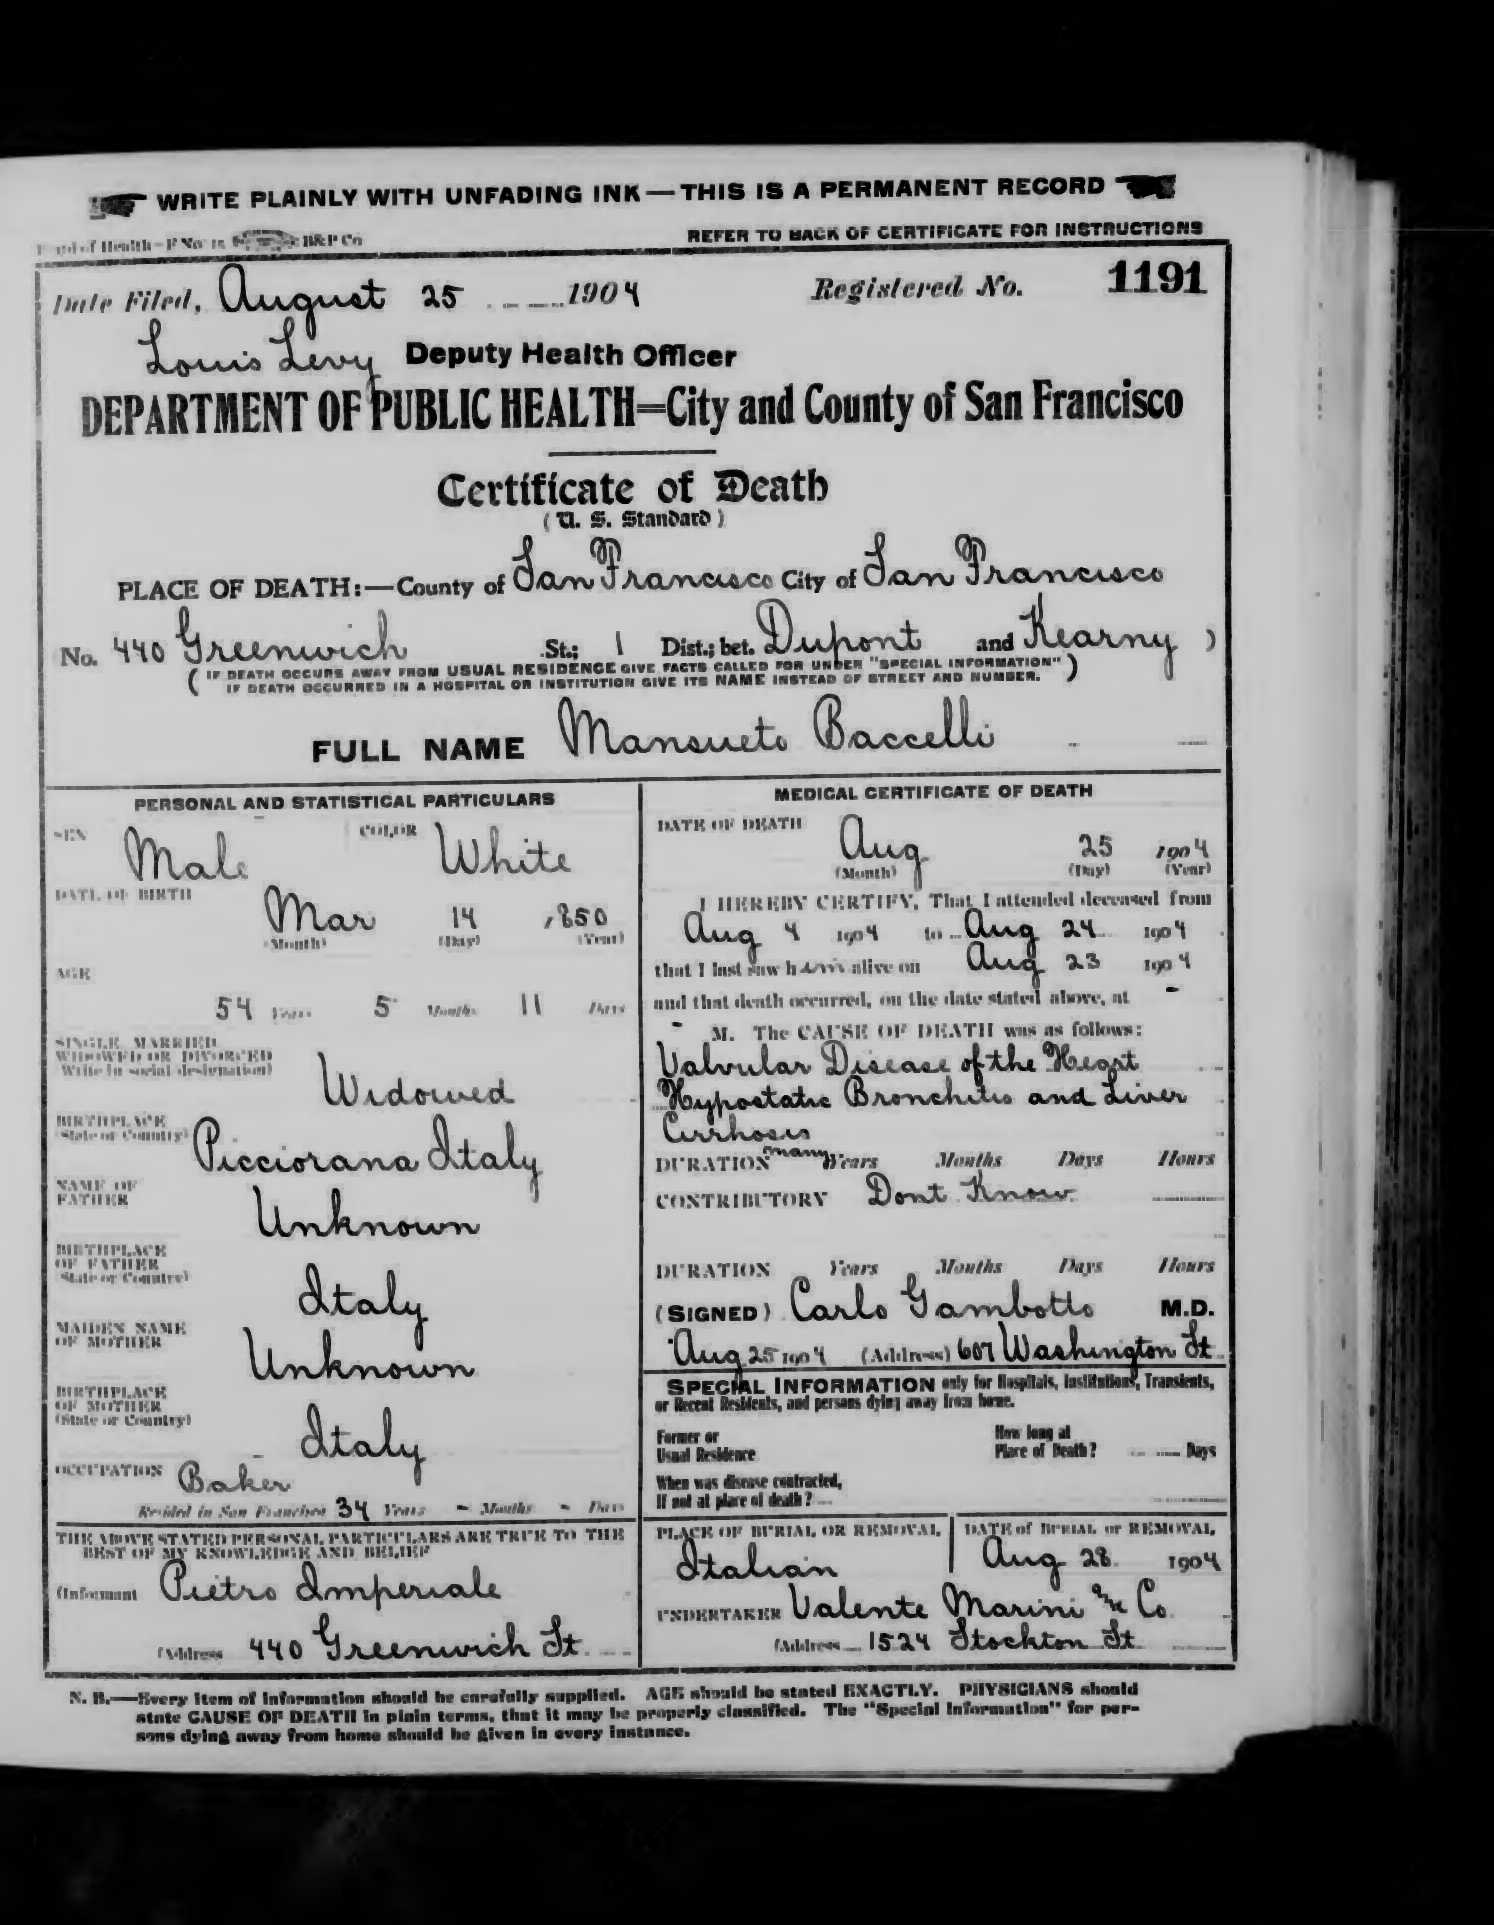 WRITE PLAINLY WITH UNFADING INK—THIS IS A PERMANENT RECORD
Board of Health—F No. 15 B&P Co
REFER TO BACK OF CERTIFICATE FOR INSTRUCTIONS
Date Filed, August 25 1904 Registered No. 1191
Louis Levy Deputy Health Officer
DEPARTMENT OF PUBLIC HEALTH=City and County of San Francisco
Certificate of Death
(U. S. Standard)
PLACE OF DEATH:—County of San Francisco City of San Francisco
No. 440 Greenwich St.; 1 Dist.; bet. Dupont and Kearny )
( IF DEATH OCCURS AWAY FROM USUAL RESIDENCE GIVE FACTS CALLED FOR UNDER "SPECIAL INFORMATION" )
IF DEATH OCCURRED IN A HOSPITAL OR INSTITUTION GIVE ITS NAME INSTEAD OF STREET AND NUMBER.
FULL NAME Mansueto Baccelli
PERSONAL AND STATISTICAL PARTICULARS
SEX Male COLOR White
DATE OF BIRTH
Mar 14 1850
(Month) (Day) (Year)
AGE
54 Years 5 Months 11 Days
SINGLE, MARRIED,
WIDOWED OR DIVORCED
(Write in social designation)
Widowed
BIRTHPLACE
(State or Country)
Picciorana Italy
NAME OF
FATHER
Unknown
BIRTHPLACE
OF FATHER
(State or Country)
Italy
MAIDEN NAME
OF MOTHER
Unknown
BIRTHPLACE
OF MOTHER
(State or Country)
Italy
OCCUPATION Baker
Resided in San Francisco 34 Years - Months - Days
THE ABOVE STATED PERSONAL PARTICULARS ARE TRUE TO THE
BEST OF MY KNOWLEDGE AND BELIEF
(Informant Pietro Imperiale
(Address 440 Greenwich St.
MEDICAL CERTIFICATE OF DEATH
DATE OF DEATH
Aug 25 1904
(Month) (Day) (Year)
I HEREBY CERTIFY, That I attended deceased from
Aug 4 1904 to Aug 24 1904
that I last saw h im alive on Aug 23 1904
and that death occurred, on the date stated above, at -
- M. The CAUSE OF DEATH was as follows:
Valvular Disease of the Heart
Hypostatic Bronchitis and Liver
Cirrhosis
DURATION many Years Months Days Hours
CONTRIBUTORY Dont Know
DURATION Years Months Days Hours
(SIGNED) Carlo Gambotto M.D.
Aug 25 1904 (Address) 607 Washington St.
SPECIAL INFORMATION only for Hospitals, Institutions, Transients,
or Recent Residents, and persons dying away from home.
Former or
Usual Residence
How long at
Place of Death? Days
When was disease contracted,
If not at place of death?
PLACE OF BURIAL OR REMOVAL
Italian
DATE of BURIAL or REMOVAL
Aug 28 1904
UNDERTAKER Valente Marini & Co
(Address 1524 Stockton St
N. B.—Every item of information should be carefully supplied. AGE should be stated EXACTLY. PHYSICIANS should
state CAUSE OF DEATH in plain terms, that it may be properly classified. The "Special Information" for per-
sons dying away from home should be given in every instance.